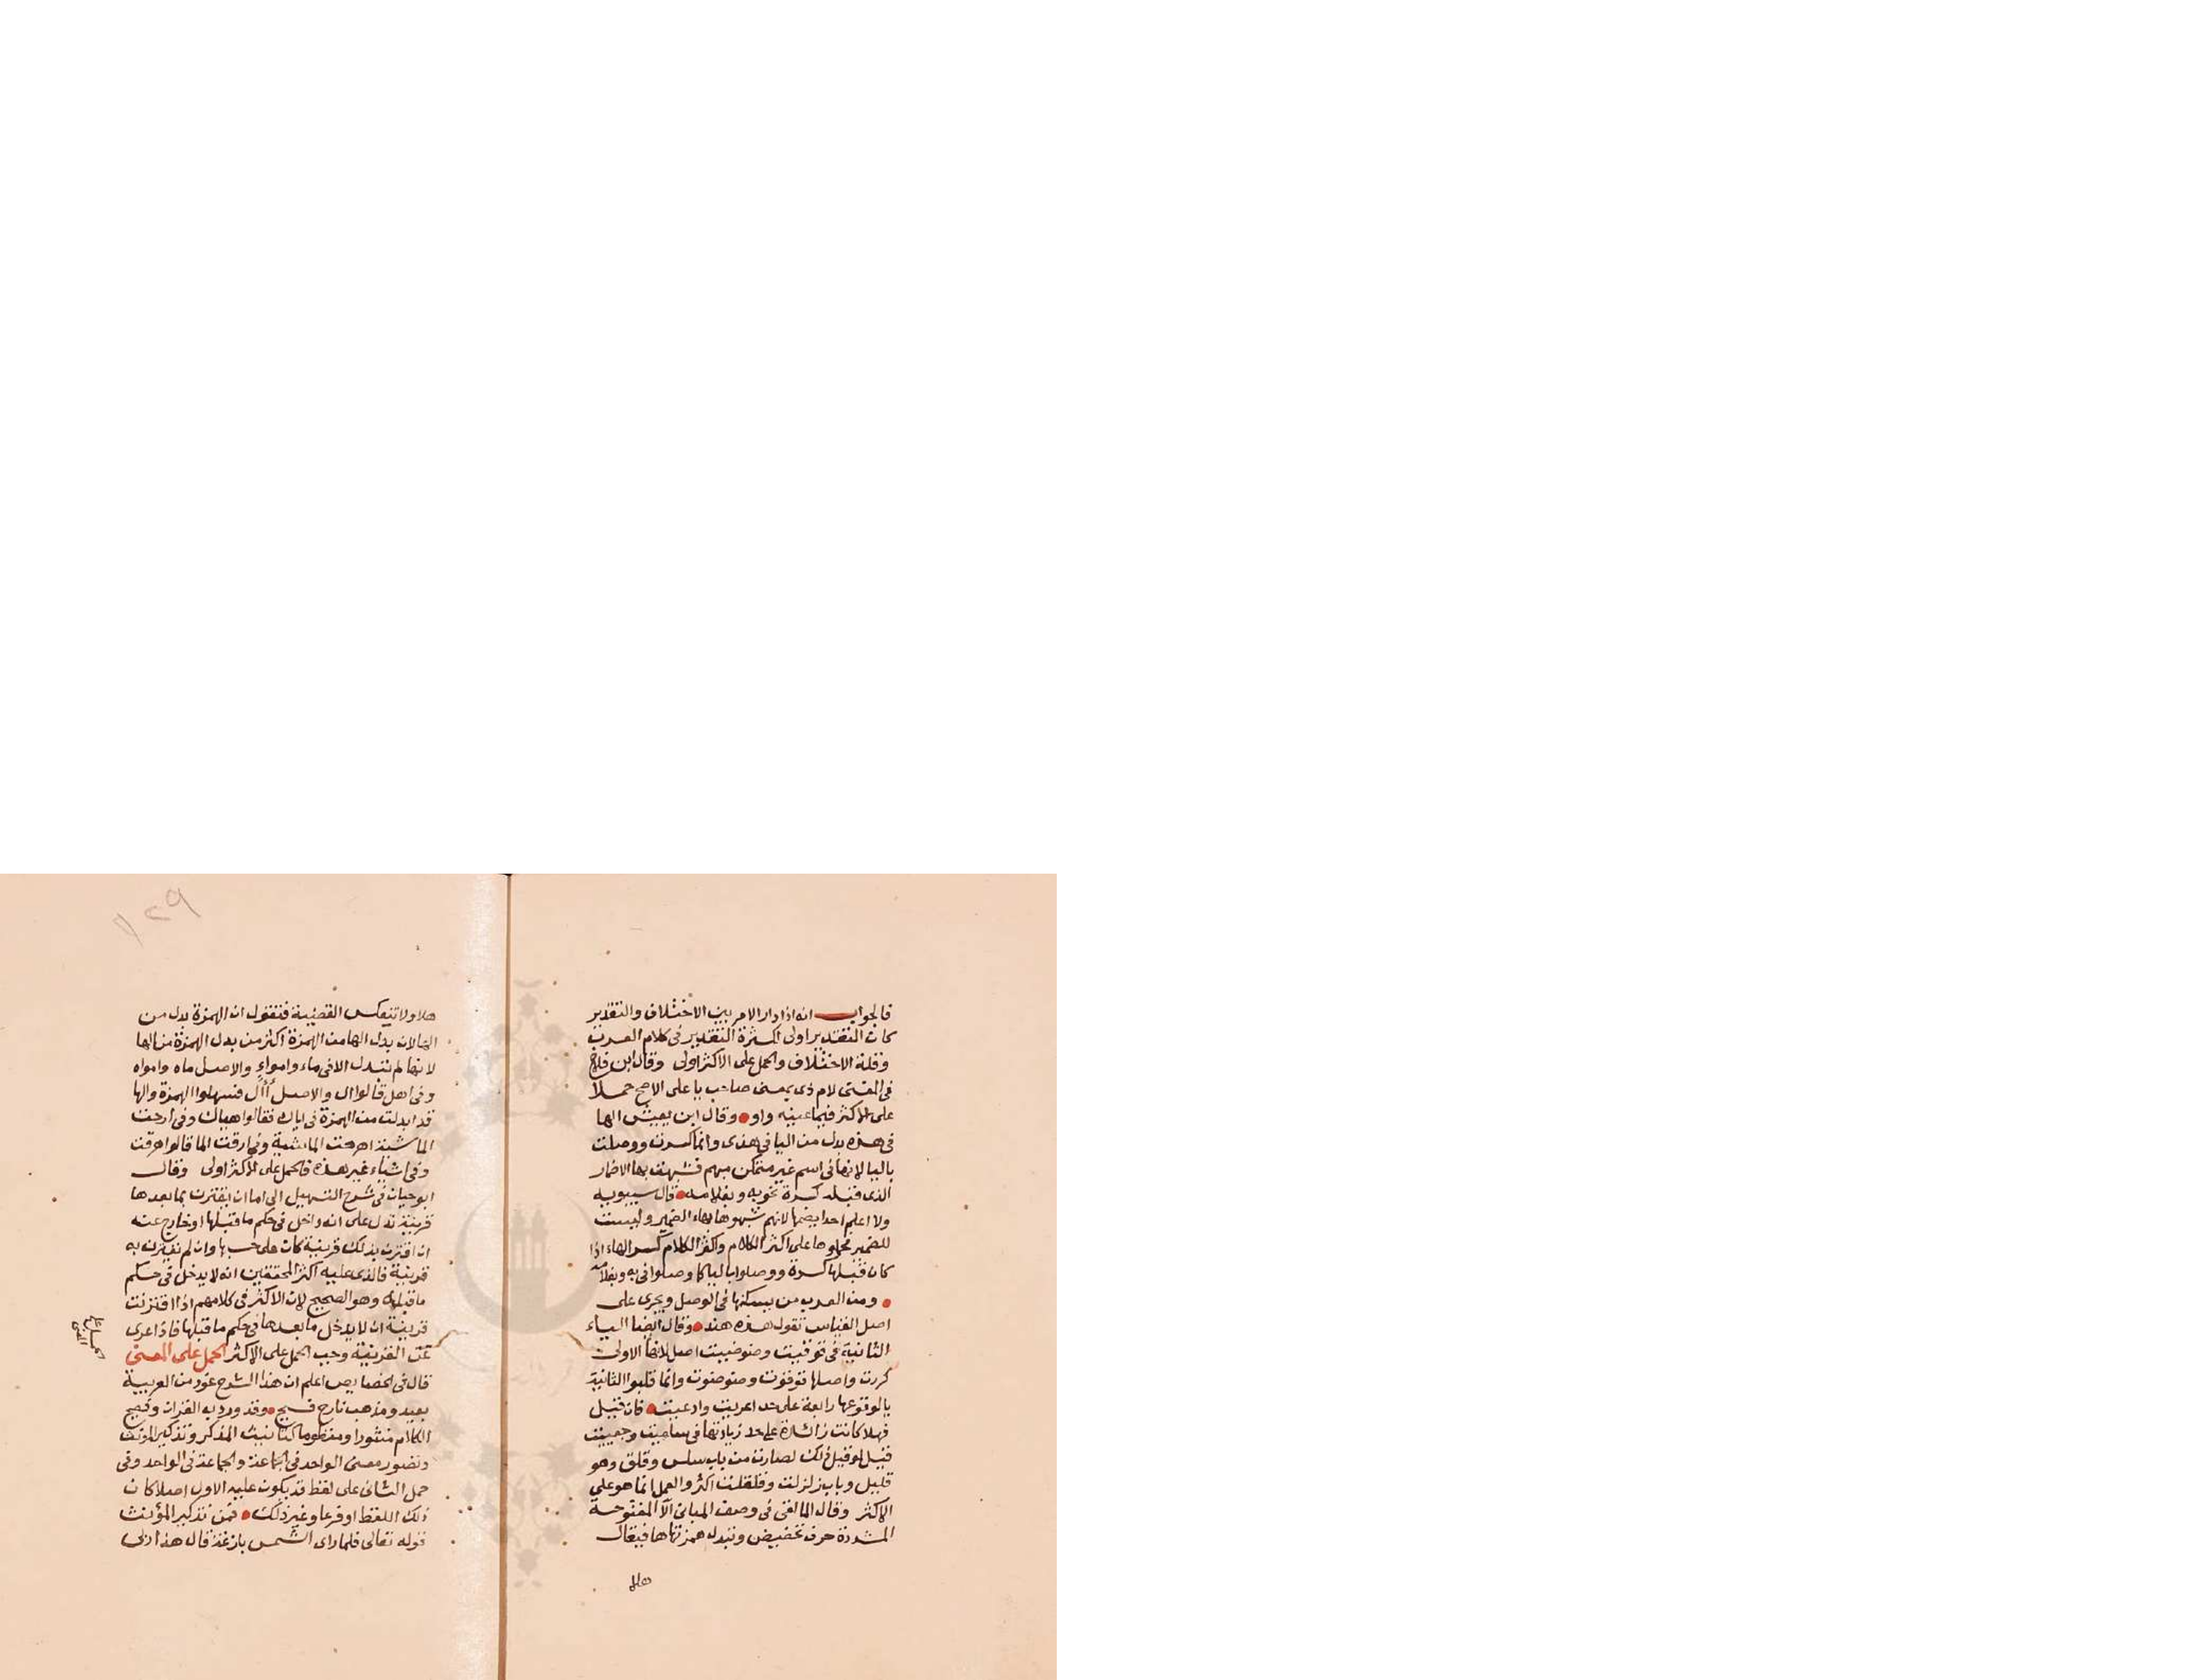 فالجواب انه اذا دار الامر بين الاختلاف والتقدير
كان التقدير اولى لكثرة التقدير فى كلام العرب
وقلة الاختلاف والحمل على الاكثر اولى وقال ابن فلاح
فى المغنى لام ذى بمعنى صاحب يا على الاصح حملا
على الاكثر فيما عينه واو وقال ابن يعيش الها
فى هذه بدل من اليا فى هذى وانما كسرت ووصلت
باليا لانها فى اسم غير متمكن مبهم فشبهت بها الاضمار
الذى قبله كسرة نحو به وبغلامه قال سيبويه
ولا اعلم احدا يضمها لانهم شبهوها بهاء الضمير وليست
للضمير فحملوها على اكثر الكلام واكثر الكلام كسر الهاء اذا
كان قبلها كسرة ووصلوا باليا كما وصلوا فى به وبغلامه
ومن العرب من يسكنها فى الوصل ويجرى على
اصل القياس تقول هذه هند وقال ايضا الياء
الثانية فى قوقيت وضوضيت اصل لانها الاولى
كررت واصلها قوقوت وضوضوت وانما قلبوا الثانية
يا لوقوعها رابعة على حد اغريت وادعيت فان قيل
فهلا كانت زائدة على حد زيادتها فى سلقيت وجعبيت
قيل لو قيل ذلك لصارت من باب سلس وقلق وهو
قليل وباب زلزلت وقلقلت اكثر والعمل انما هو على
الاكثر وقال المالقى فى وصف المبانى الا المفتوحة
المشددة حرف تحضيض وتبدل همزتها ها فيقال
هلا
هلا ولا تنعكس القضية فتقول ان الهمزة بدل من
الها لان بدل الها من الهمزة اكثر من بدل الهمزة من الها
لانها لم تبدل الا فى ماء وامواء والاصل ماه وامواه
وفى اهل قالوا ال والاصل أأل فسهلوا الهمزة والها
قد ابدلت من الهمزة فى اياك فقالوا هياك وفى ارحت
الماشية هرحت الماشية وفى ارقت الما قالوا هرقت
وفى اشياء غير هذه فالحمل على الاكثر اولى وقال
ابو حيان فى شرح التسهيل الى اما ان يقترن بما بعدها
قرينة تدل على انه داخل فى حكم ما قبلها او خارج عنه
ان اقترن بذلك قرينة كان على حسبها وان لم تقترن به
قرينة فالذى عليه اكثر المحققين انه لا يدخل فى حكم
ما قبلها وهو الصحيح لان الاكثر فى كلامهم اذا اقترنت
قرينة ان لا يدخل ما بعدها فى حكم ما قبلها فاذا عرى
عن القرينة وجب الحمل على الاكثر الحمل على المعنى
قال فى الخصايص اعلم ان هذا الشرح غور من العربية
بعيد ومذهب نازح فسيح وقد ورد به القران وفصيح
الكلام منثورا ومنظوما كتانيث المذكر وتذكير المونث
وتصور معنى الواحد فى الجماعة والجماعة فى الواحد وفى
حمل الثانى على لفظ قد يكون عليه الاول اصلا كان
ذلك اللفظ او فرعا وغير ذلك فمن تذكير المؤنث
قوله تعالى فلما راى الشمس بازغة قال هذا ربى